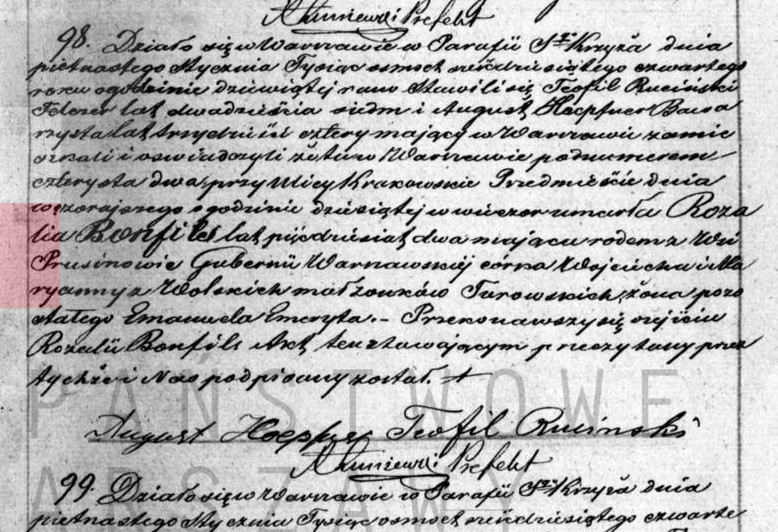 Prefekt
98. Działo się w Warszawie w Parafii Sgo Krzyża dnia
piętnastego Stycznia Tysiąc ośmset sześćdziesiątego czwartego
roku o godzinie dziewiątej rano Stawili się Teofil Ruciński
Felczer lat dwadzieścia siedm i August Hoepfner
lat trzydzieści cztery mający w Warszawie zamie
szkali i oświadczyli że tu w Warszawie pod numerem
czterysta dwa przy Ulicy Krakowskie Przedmieście dnia
wczorajszego o godzinie dziesiątej w wieczor umarła Roza
lia Bonfils lat pięćdziesiąt dwa mająca rodem z Wsi
Prusinowic Gubernii Warszawskiej córka Wojciecha i Ma
ryanny z Wolskich małżonków Turowskich, żona pozo
stałego Emanuela Emeryta. – Przekonawszy się o zejściu
Rozalii Bonfils Akt ten stawającym przeczytany przez
tychże i Nas podpisany został.
PAŃSTWOWE
August Hoepfner Teofil Ruciński
Prefekt
ARSZAW
99. Działo się w Warszawie w Parafii Sgo Krzyża dnia
piętnastego Stycznia Tysiąc ośmset sześćdziesiątego czwarte